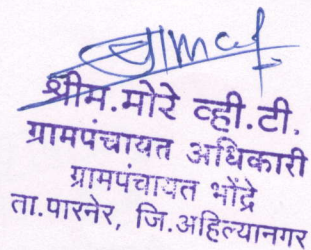 श्रीम.मोरे व्ही.टी.
ग्रामपंचायत अधिकारी
ग्रामपंचायत भोंद्रे
ता.पारनेर, जि.अहिल्यानगर